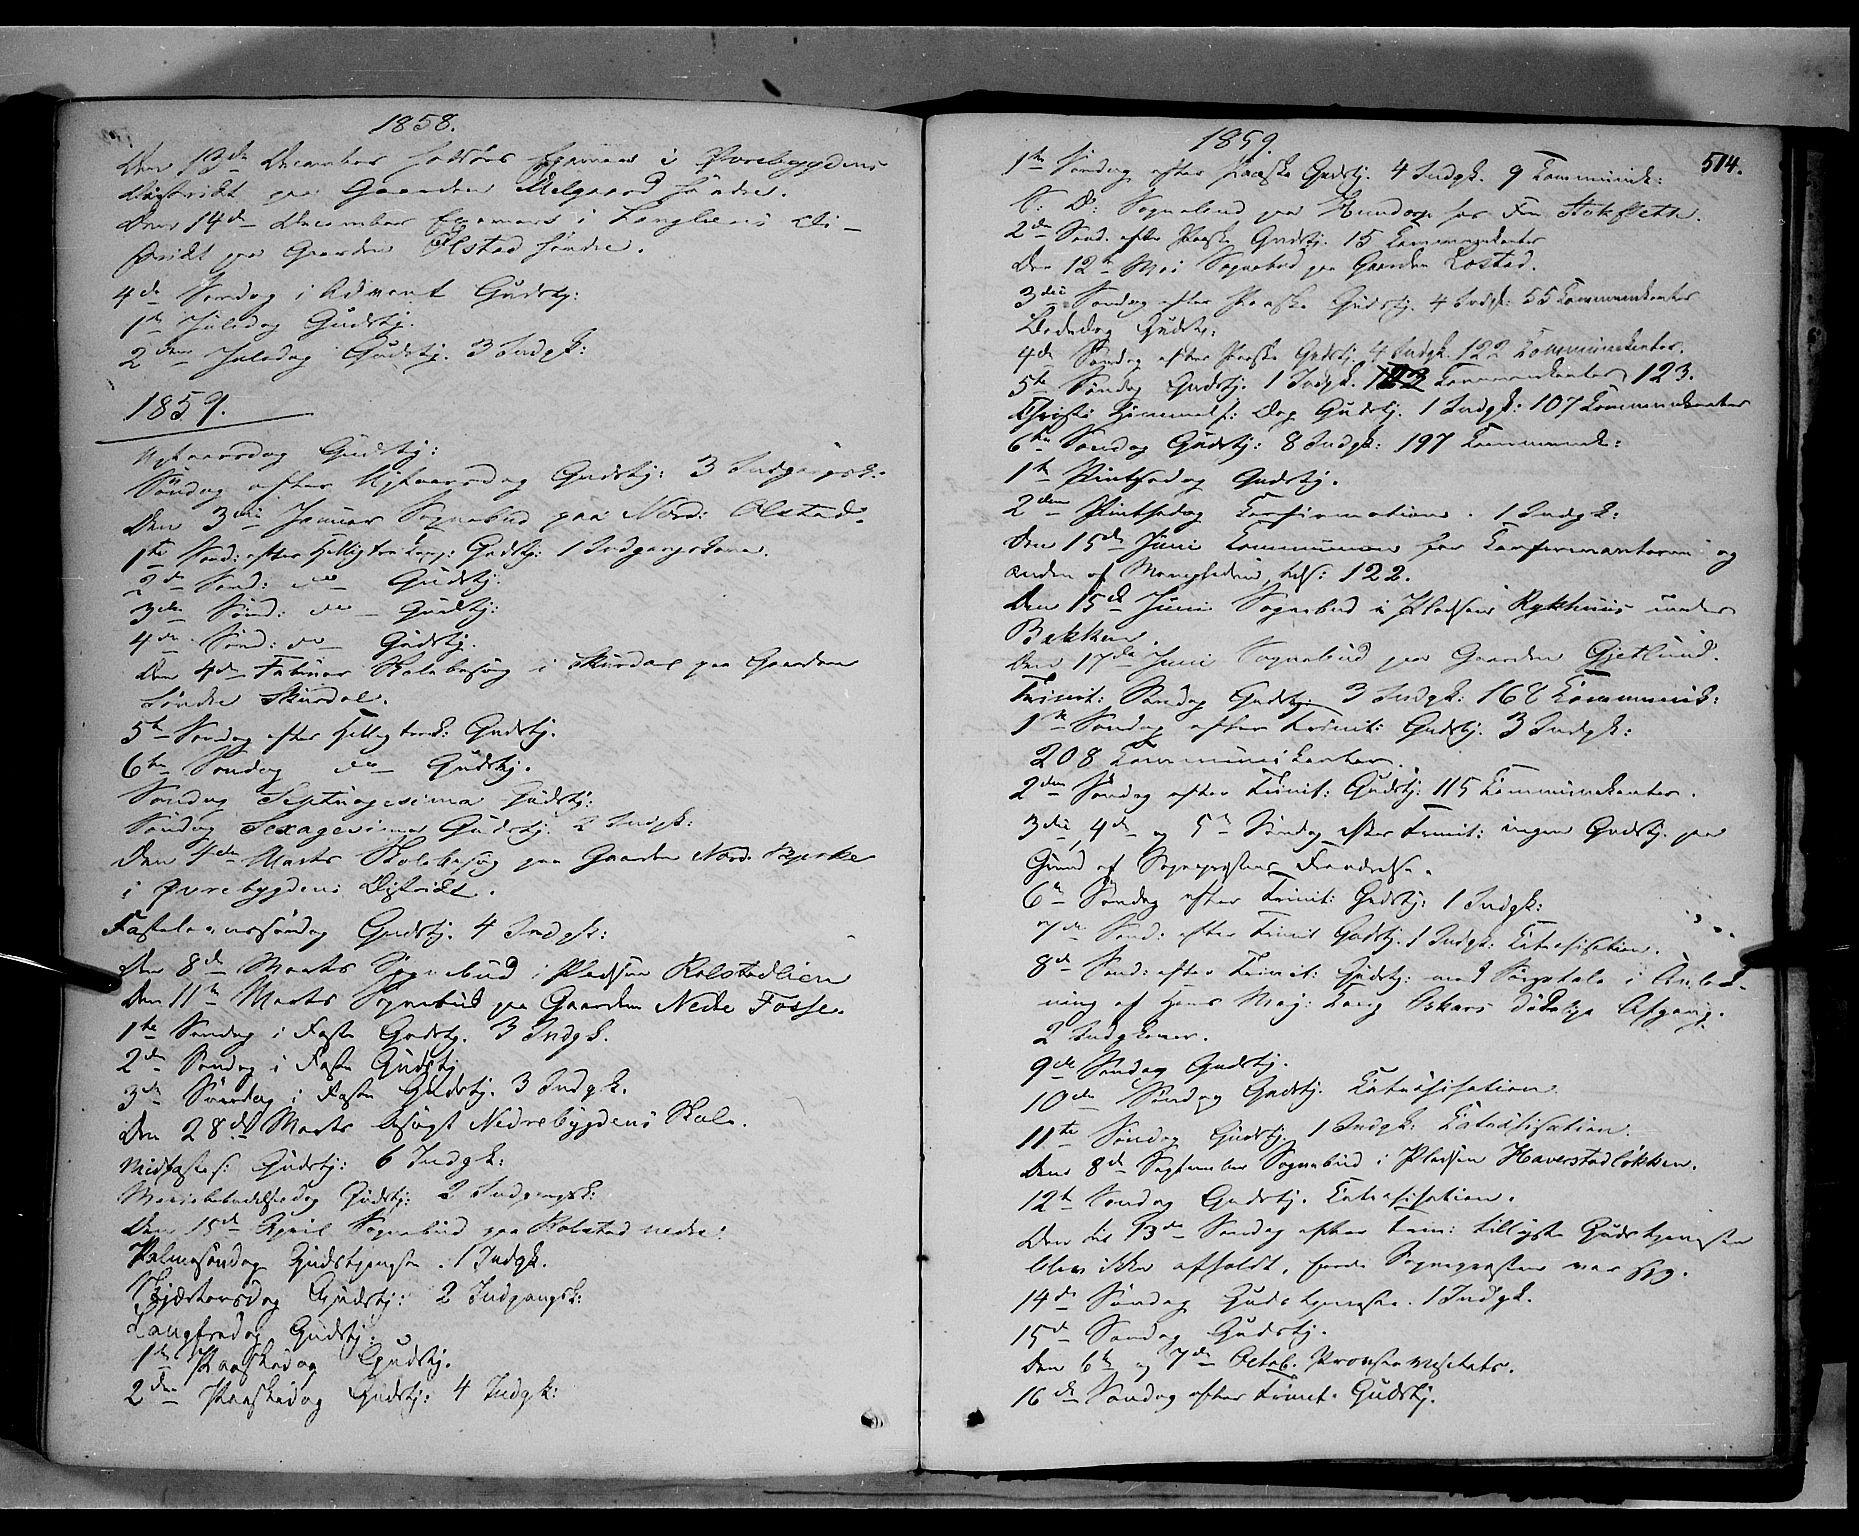 1858.
Den 13de December holdtes Examen i Øvrebygdens
District paa Gaarden Melgaard søndre.
Den 14de December Examen i Di-
strict paa Gaarden Ølstad søndre.
4de Søndag i Advent Gudstj:
1ste Juledag Gudstj.
2den Juledag Gudstj. 3 Indgk:
1859.
Nytaarsdag Gudstj:
Søndag efter Nytaarsdag Gudstj: 3 Indgangsk:
Den 3die Januar Sognebud paa Nord: Olstad.
1ste Sønd: efter Helligtrekong: Gudstj: 1 Indgangskone.
2den Sønd: do Gudstj:
3die Sønd: do Gudstj:
4de Sønd: do Gudstj.
Den 4de Februar Skolebesøg i Skurdal paa Gaarden
Søndre Skurdal.
5te Søndag efter Helligtrek: Gudstj.
6te Søndag do Gudstj.
Søndag Septuagesima Gudstj:
Søndag Sexagesima Gudstj. 2 Indgk:
Den 4de Marts Skolebesøg paa Gaarden Nord:
i Øvrebygdens District.
Fastelavnssøndag Gudstj. 4 Indgk:
Den 8de Marts Sognebud i Pladsen Kolstadlien
Den 11te Marts Sognebud paa Gaarden Nedre Fosse.
1ste Søndag i Faste Gudstj. 3 Indgk.
2den Søndag i Faste Gudstj.
3die Søndag i Faste Gudstj. 3 Indgk.
Den 28de Marts besøgt Nedrebygdens Skole.
Midfastes: Gudstj: 6 Indgk:
Mariæbebudelsesdag Gudstj: 2 Indgangsk:
Den 15de April Sognebud paa Kolstad nedre:
Palmesøndag Gudstjeneste. 1 Indgk.
Skjærtorsdag Gudstj: 2 Indgangsk:
Langfredag Gudstj:
1ste Paaskedag Gudstj.
2den Paaskedag Gudstj: 4 Indgk:
1859.
514.
1ste Søndag efter Paaske Gudstj. 4 Indgk. 9 Communik:
S: D: Sognebud paa Hundorp hos Fru Stokfleth.
2den Sønd. efter Paaske Gudstj. 15 Communikanter
Den 12te Mai Sognebud paa Gaarden
3die Søndag efter Paaske Gudstj. 4 Indgk: 55 Communikanter
Bededag Gudstj:
4de Søndag efter Paaske Gudstj. 4 Indgk. 122 Communikanter.
5te Søndag Gudstj. 1 Indgk. Communikanter, 123.
Christi Himmelf: Dag Gudstj. 1 Indgk: 107 Communikanter
6te Søndag Gudstj: 8 Indgk: 197 Communik:
1ste Pintsedag Gudstj.
2den Pintsedag Confirmation. 1 Indgk:
Den 15de Juni Communion for Confirmanterne og
anden af Menigheden, tils: 122.
Den 15de Juni Sognebud i Pladsen Rykhuus under
Bakken.
Den 17de Juni Sognebud paa Gaarden Gjetlund.
Trinit: Søndag Gudstj. 3 Indgk: 168 Communik:
1ste Søndag efter Trinit: Gudstj. 3 Indgk:
208 Communikanter.
2den Søndag efter Trinit: Gudstj: 115 Communikanter.
3die, 4de og 5te Søndag efter Trinit: ingen Gudstj. paa
Grund af Sognepræstens Fraværelse.
6te Søndag efter Trinit: Gudstj: 1 Indgk:
7de Sønd: efter Trinit Gudstj. 1 Indgk: Catechisation.
8de Sønd: efter Trinit: Gudstj: med Sørgetale i Anled-
ning af Hans Maj: Kong Oskars dødelige Afgang.
2 Indgkoner.
9de Søndag Gudstj.
10de Søndag Gudstj. Catechisation.
11te Søndag Gudstj. 1 Indgk: Catechisation.
Den 8de September Sognebud i Pladsen Haverstadløkken.
12te Søndag Gudstj. Catechisation.
Den til 13de Søndag efter Trin: tillyste Gudstjeneste
blev ikke afholdt, fordi Sognepræsten var syg.
14de Søndag Gudstjeneste. 1 Indgk.
15de Søndag Gudstj.
Den 6te og 7de Octob. Provsten visiterte.
16de Søndag efter Trinit: Gudstj.